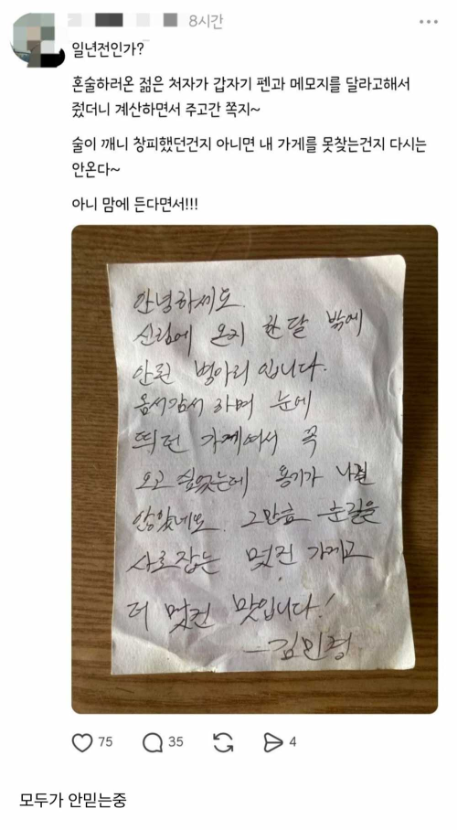 8시간
일년전인가?
혼술하러온 젊은 처자가 갑자기 펜과 메모지를 달라고해서
줬더니 계산하면서 주고간 쪽지~
술이 깨니 창피했던건지 아니면 내 가게를 못찾는건지 다시는
안온다~
아니 맘에 든다면서!!!
안녕하세요
신림에 온지 한달 밖에
안된 병아리입니다.
옴서감서 하며 눈에
띄던 가게여서 꼭
오고 싶었는데 용기가 나질
않았네요. 그만큼 눈길을
사로잡는 멋진 가게고
더 멋진 맛입니다!
75 35 4
모두가 안믿는중